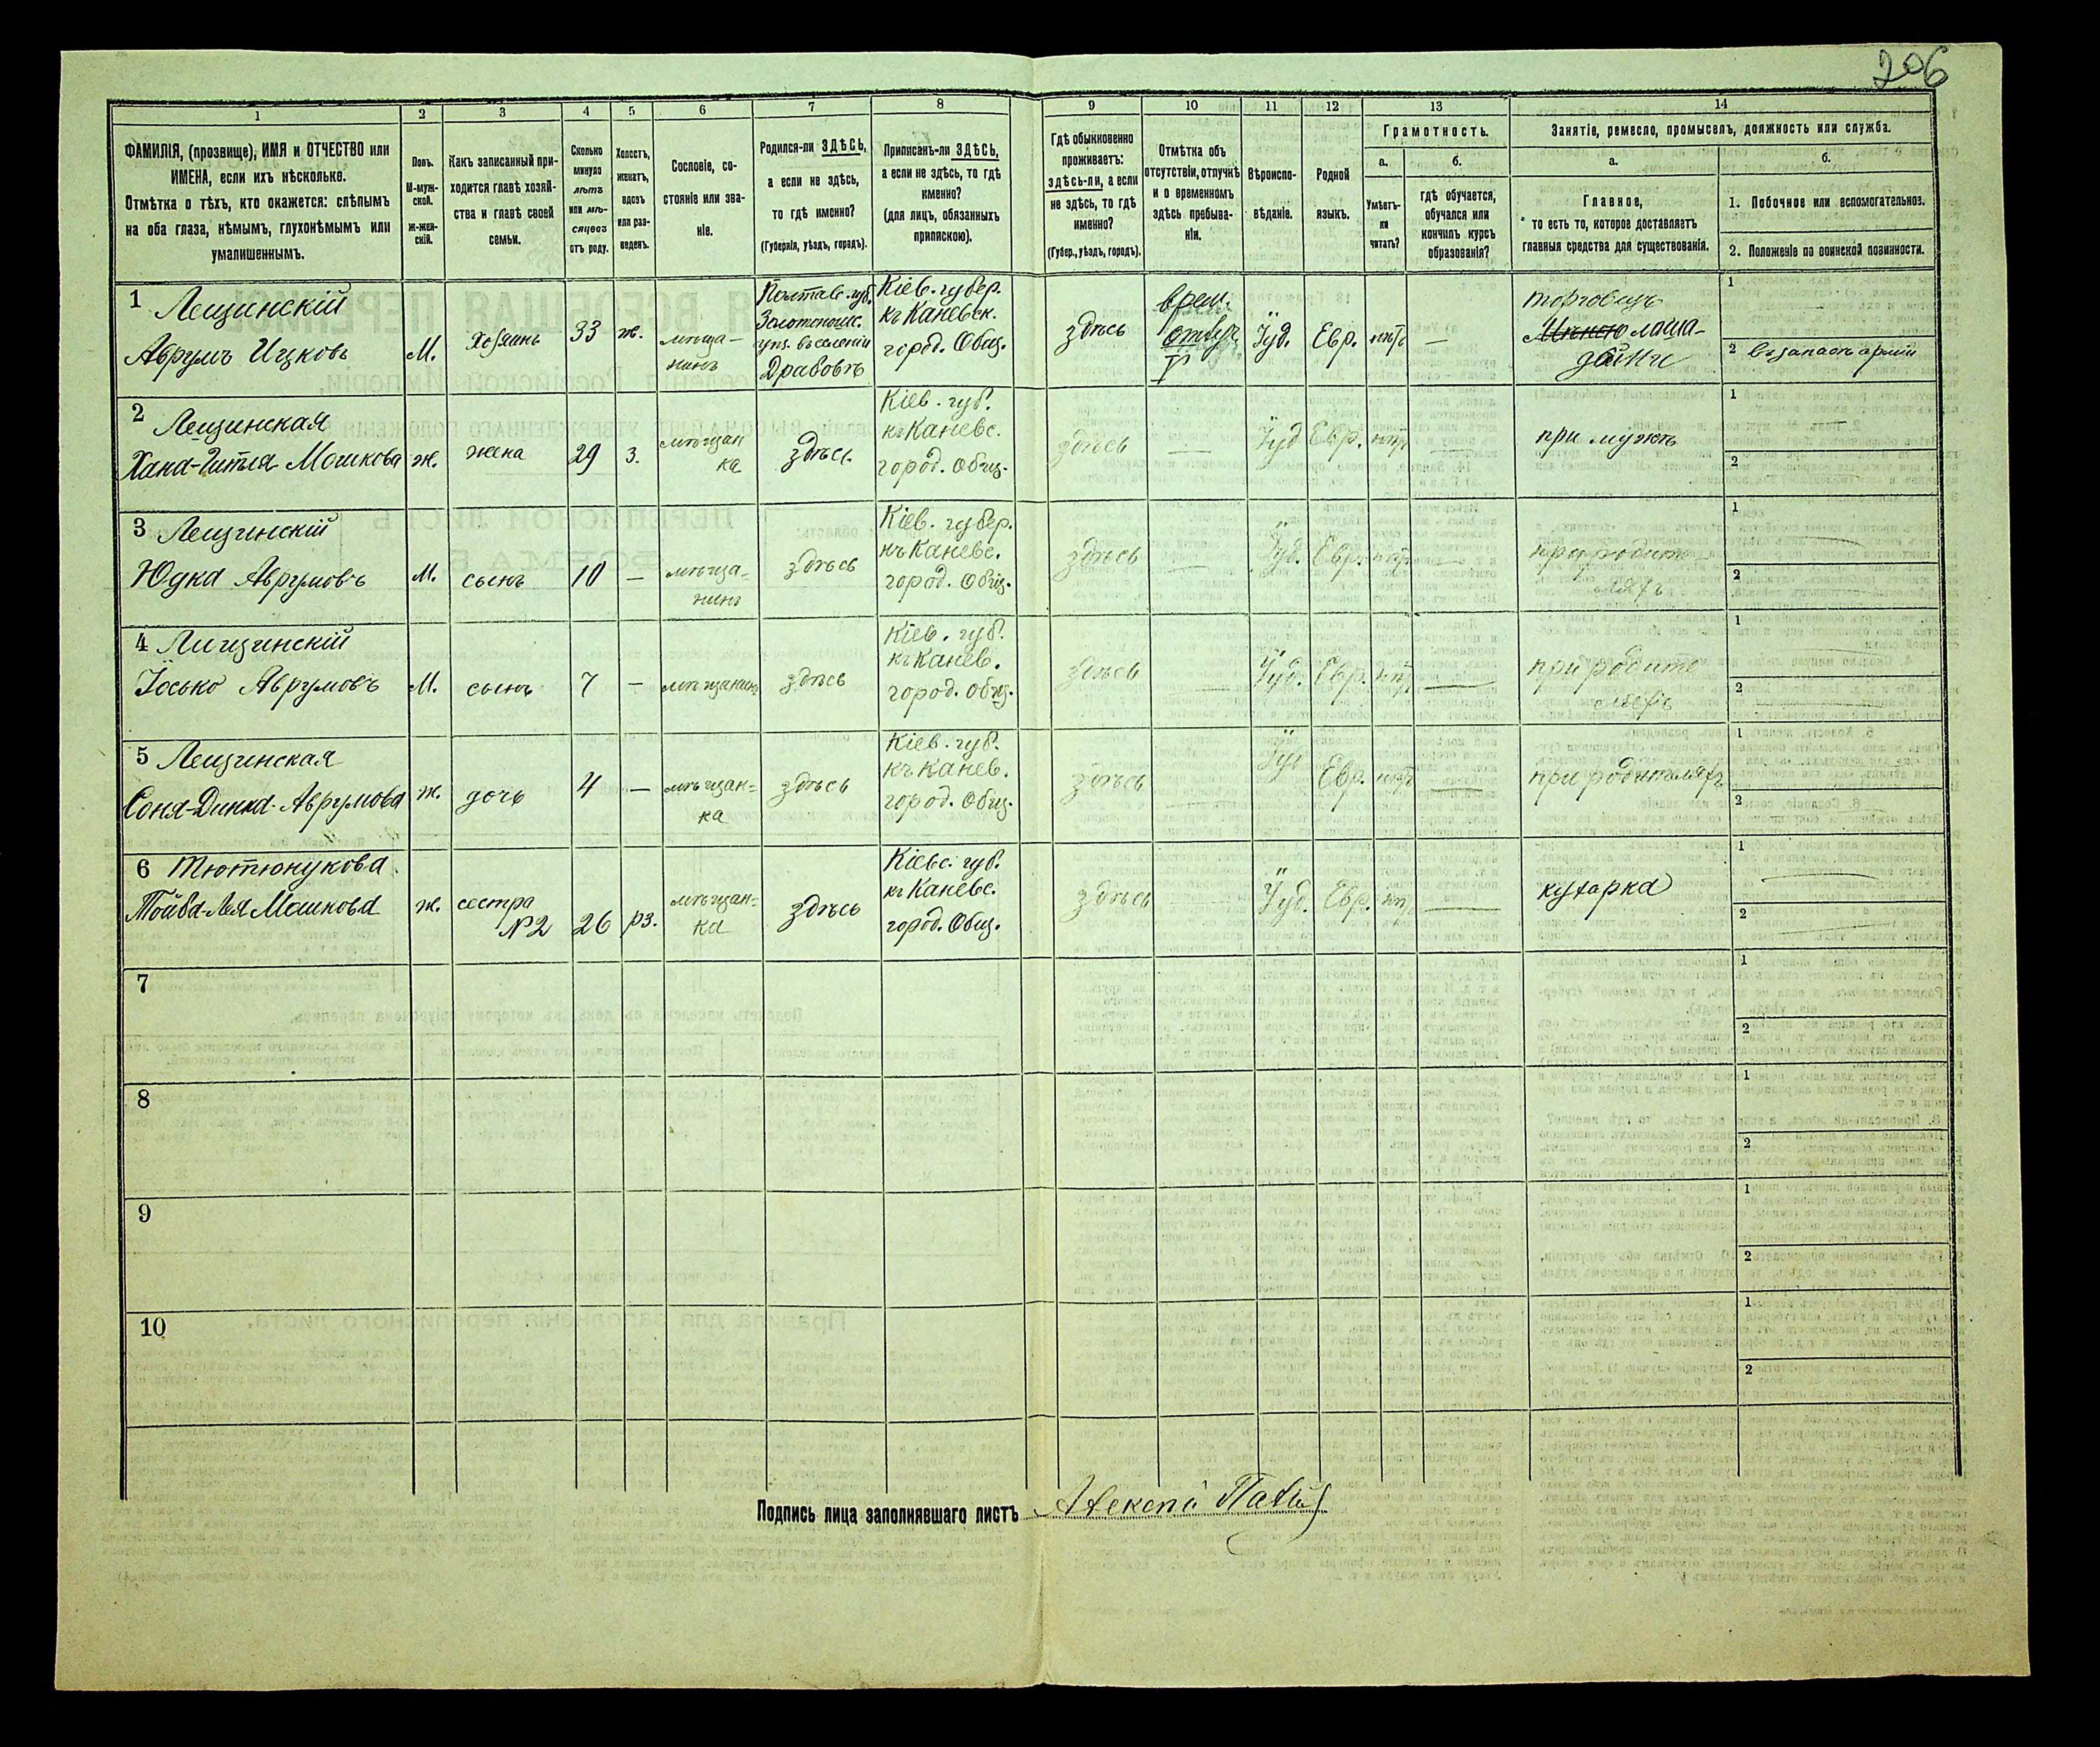 206
1
2
3
4
5
6
7
8
9
10
11
12
13
14
ФАМИЛІЯ, (прозвище), ИМЯ и ОТЧЕСТВО или
ИМЕНА, если ихъ нѣсколько.
Отмѣтка о тѣхъ, кто окажется: слѣпымъ
на оба глаза, нѣмымъ, глухонѣмымъ или
умалишеннымъ.
Полъ.
М-муж-
ской.
Ж-жен-
скій.
Какъ записанный при-
ходится главѣ хозяй-
ства и главѣ своей
семьи.
Сколько
минуло
лѣтъ
или мѣ-
сяцевъ
отъ роду.
Холостъ,
женатъ,
вдовъ
или раз-
веденъ.
Сословіе, со-
стояніе или зва-
ніе.
Родился-ли ЗДѢСЬ,
а если не здѣсь,
то гдѣ именно?
(Губернія, уѣздъ, городъ).
Приписанъ-ли ЗДѢСЬ,
а если не здѣсь, то гдѣ
именно?
(для лицъ, обязанныхъ
припискою).
Гдѣ обыкновенно
проживаетъ:
здѣсь-ли, а если
не здѣсь, то гдѣ
именно?
(Губер., уѣздъ, городъ).
Отмѣтка объ
отсутствіи, отлучкѣ
и о временномъ
здѣсь пребыва-
ніи.
Вѣроиспо-
вѣданіе.
Родной
языкъ.
Грамотность.
а.
б.
Умѣетъ-
ли
читать?
гдѣ обучается,
обучался или
кончилъ курсъ
образованія?
Занятіе, ремесло, промыселъ, должность или служба.
а.
б.
Главное,
то есть то, которое доставляетъ
главныя средства для существованія.
1. Побочное или вспомогательное.
2. Положеніе по воинской повинности.
1 Лещинскій
Аврумъ Ицковъ
М.
Хозяинъ
33
ж.
мѣща-
нинъ
Полтав. губ.
Золотонош.
уѣз. въ селеніи
Драбовъ
Кіев. губер.
къ Каневск.
город. Общ.
здѣсь
врем.
отлуч
Іуд.
Евр.
нѣтъ
—
торговецъ
лоша-
дьми
1
2 въ запасѣ арміи
2 Лещинская
Хана-Гитля Мошкова
ж.
жена
29
з.
мѣщан
ка
здѣсь
Кіев. губ.
къ Каневс.
город. общ.
здѣсь
—
Іуд
Евр.
нѣтъ
—
при мужѣ
1
2
3 Лещинскій
Юдка Аврумовъ
М.
сынъ
10
—
мѣща-
нинъ
здѣсь
Кіев. губер.
къ Каневс.
город. Общ.
здѣсь
—
Іуд.
Евр.
нѣтъ
—
при родите-
ляхъ
1
2
4 Лищинскій
Іосько Аврумовъ
М.
сынъ
7
—
мѣщанинъ
здѣсь
Кіев. губ.
къ Канев.
город. общ.
здѣсь
—
Іуд.
Евр.
нѣтъ
—
при родите
ляхъ
1
2
5 Лещинская
Соня-Динка Аврумова
ж.
дочь
4
—
мѣщан=
ка
здѣсь
Кіев. губ.
къ Канев.
город. Общ.
здѣсь
—
Іуд
Евр.
нѣтъ
—
при родителяхъ
1
2
6 Тютюнукова
Тойба-Лея Мошкова
ж.
сестра
№2
26
рз.
мѣщан=
ка
здѣсь
Кіевс. губ.
къ Каневс.
город. Общ.
здѣсь
—
Іуд.
Евр.
нѣтъ
—
кухарка
1
2
7
1
2
8
1
2
9
1
2
10
1
2
Подпись лица заполнявшаго листъ
Алексѣй